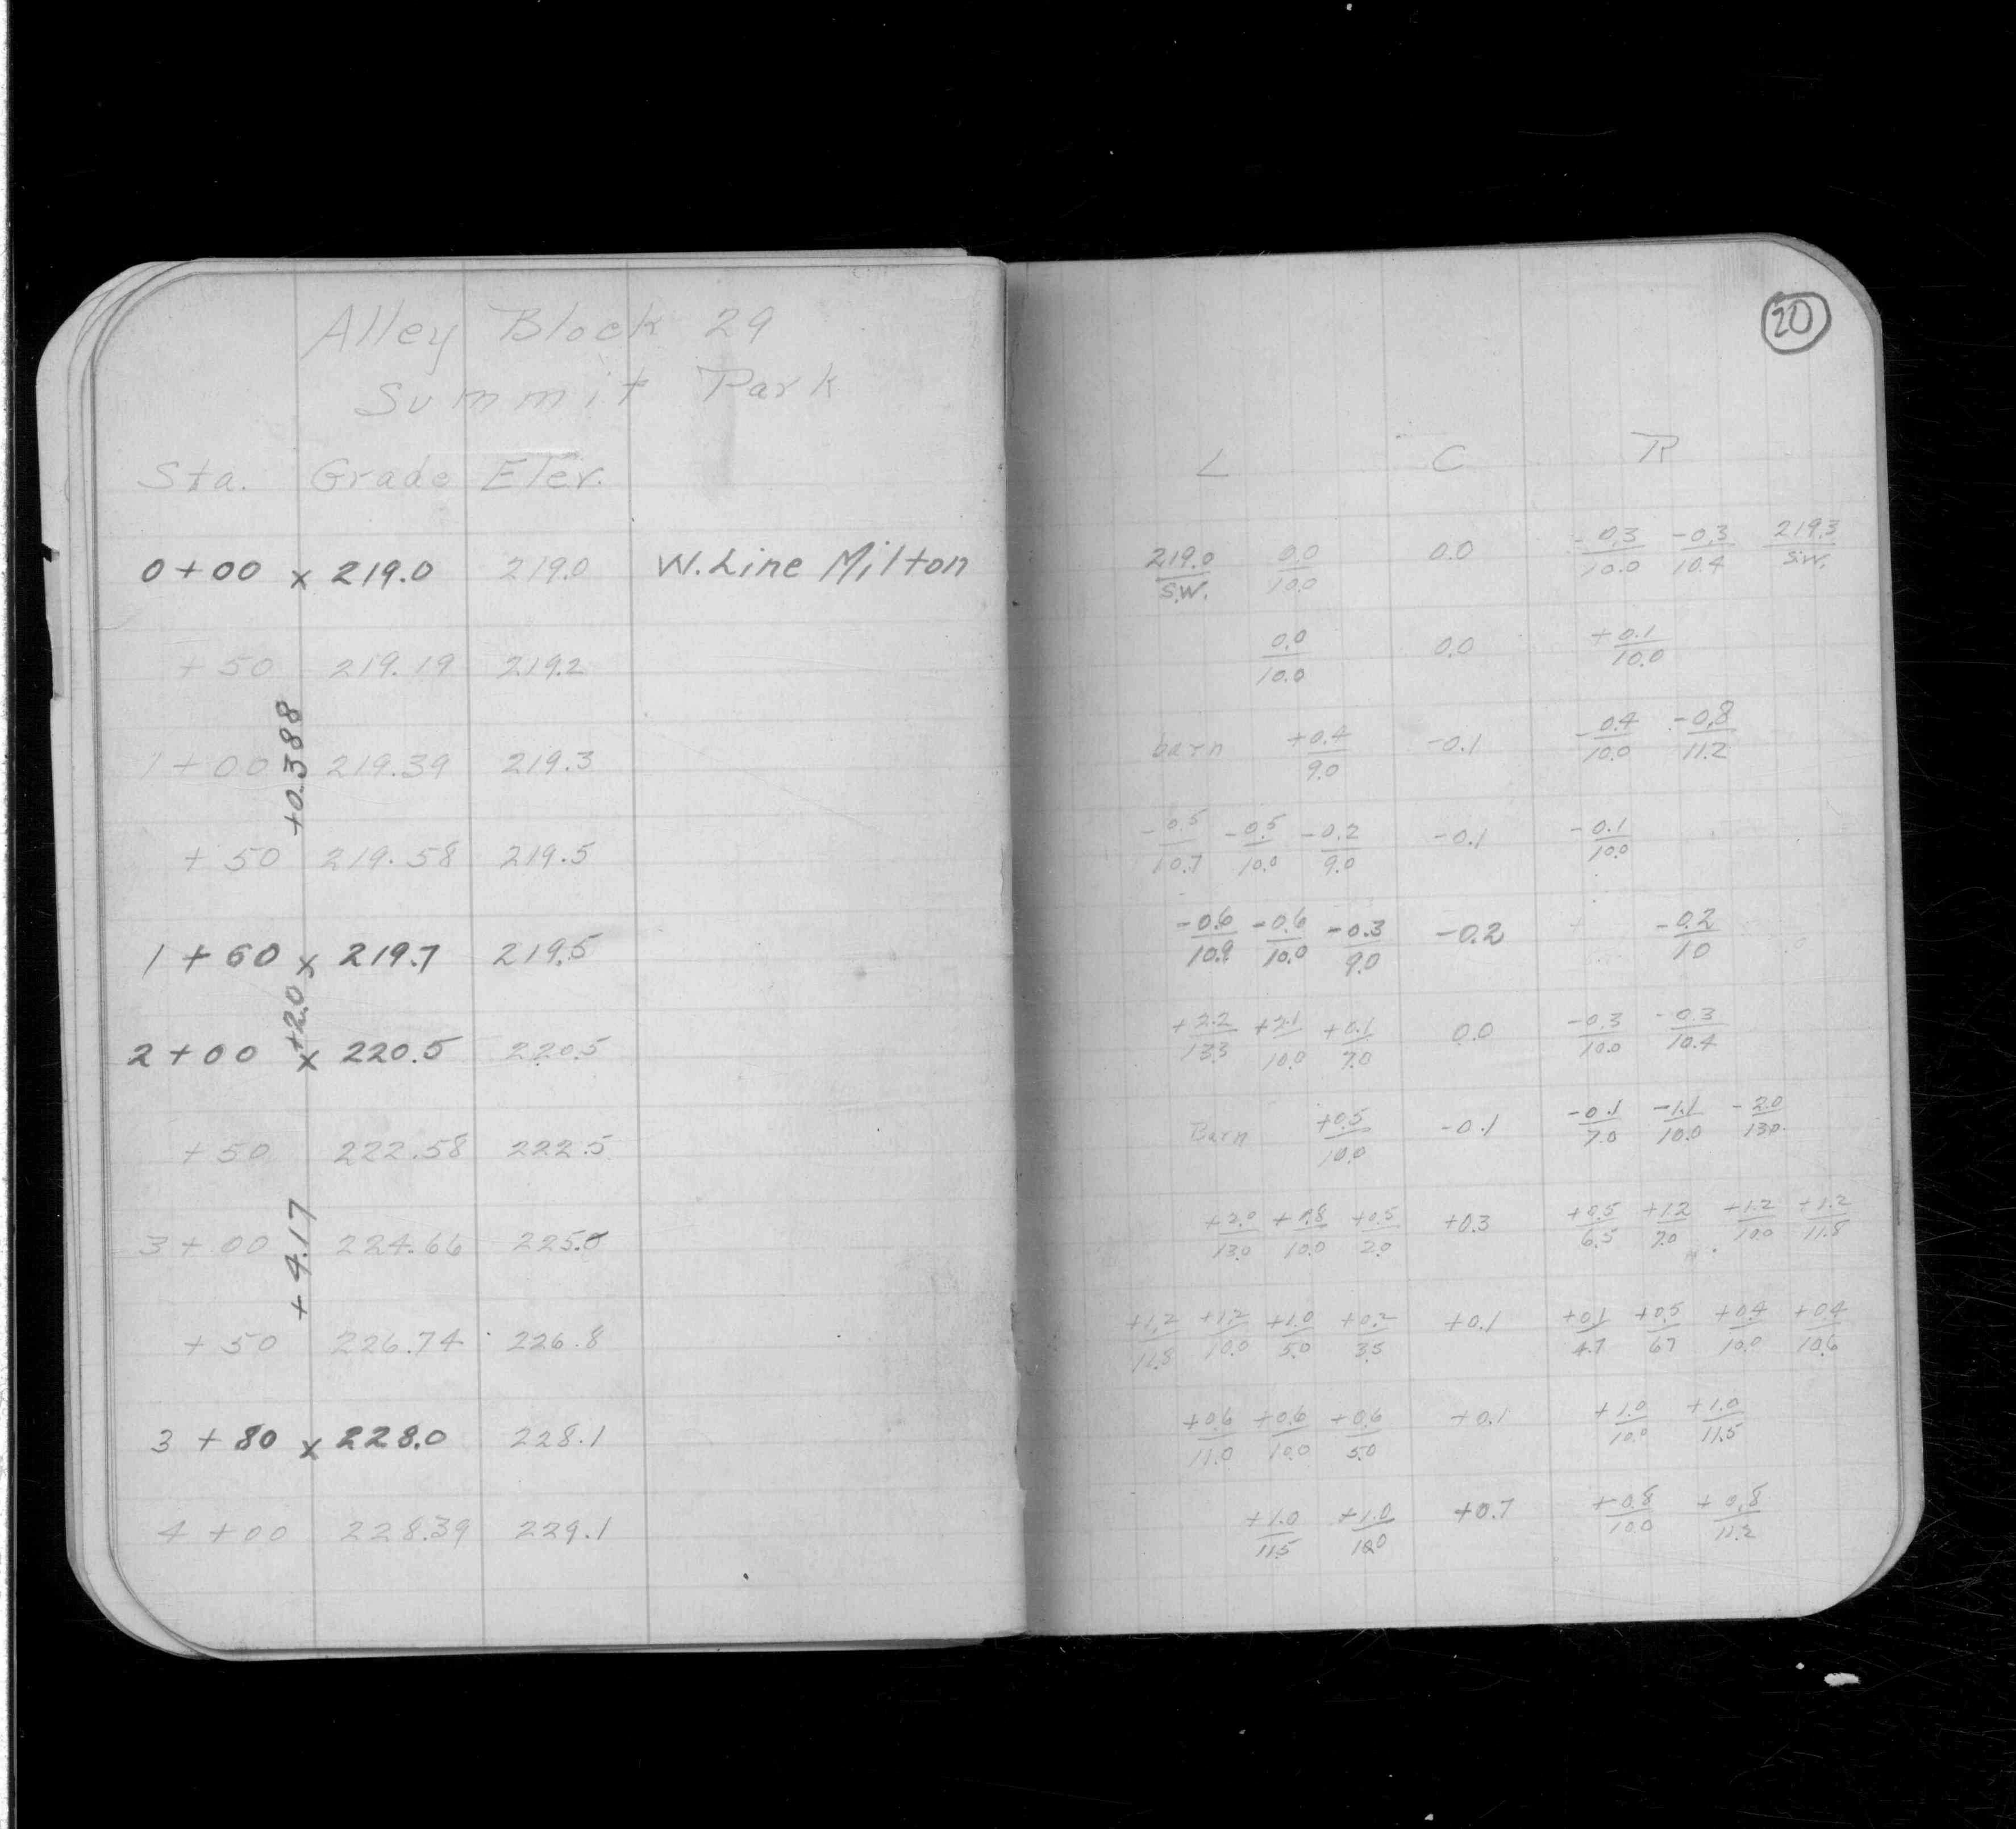 Alley Block 29
Summit Park
Sta. Grade Elev.
0+00 x 219.0 219.0 W. Line Milton
+50 219.19 219.2
+0.388
1+00 219.39 219.3
+50 219.58 219.5
1+60 x 219.7 219.5
+2.0
2+00 x 220.5 220.5
+50 222.58 222.5
+4.17
3+00 224.66 225.0
+50 226.74 226.8
3+80 x 228.0 228.1
4+00 228.39 229.1
20
L C R
219.0/S.W. 0.0/10.0 0.0 -0.3/10.0 -0.3/10.4 219.3/S.W.
0.0/10.0 0.0 +0.1/10.0
barn +0.4/9.0 -0.1 -0.4/10.0 -0.8/11.2
-0.5/10.7 -0.5/10.0 -0.2/9.0 -0.1 -0.1/10.0
-0.6/10.9 -0.6/10.0 -0.3/9.0 -0.2 -0.2/10
+2.2/13.3 +2.1/10.0 +0.1/7.0 0.0 -0.3/10.0 -0.3/10.4
Barn +0.5/10.0 -0.1 -0.1/7.0 -1.1/10.0 -2.0/13.0
+2.0/13.0 +1.8/10.0 +0.5/2.0 +0.3 +0.5/6.5 +1.2/7.0 +1.2/10.0 +1.2/11.8
+1.2/11.8 +1.2/10.0 +1.0/5.0 +0.2/3.5 +0.1 +0.1/4.7 +0.5/6.7 +0.4/10.0 +0.4/10.6
+0.6/11.0 +0.6/10.0 +0.6/5.0 +0.1 +1.0/10.0 +1.0/11.5
+1.0/11.5 +1.0/10.0 +0.7 +0.8/10.0 +0.8/11.2